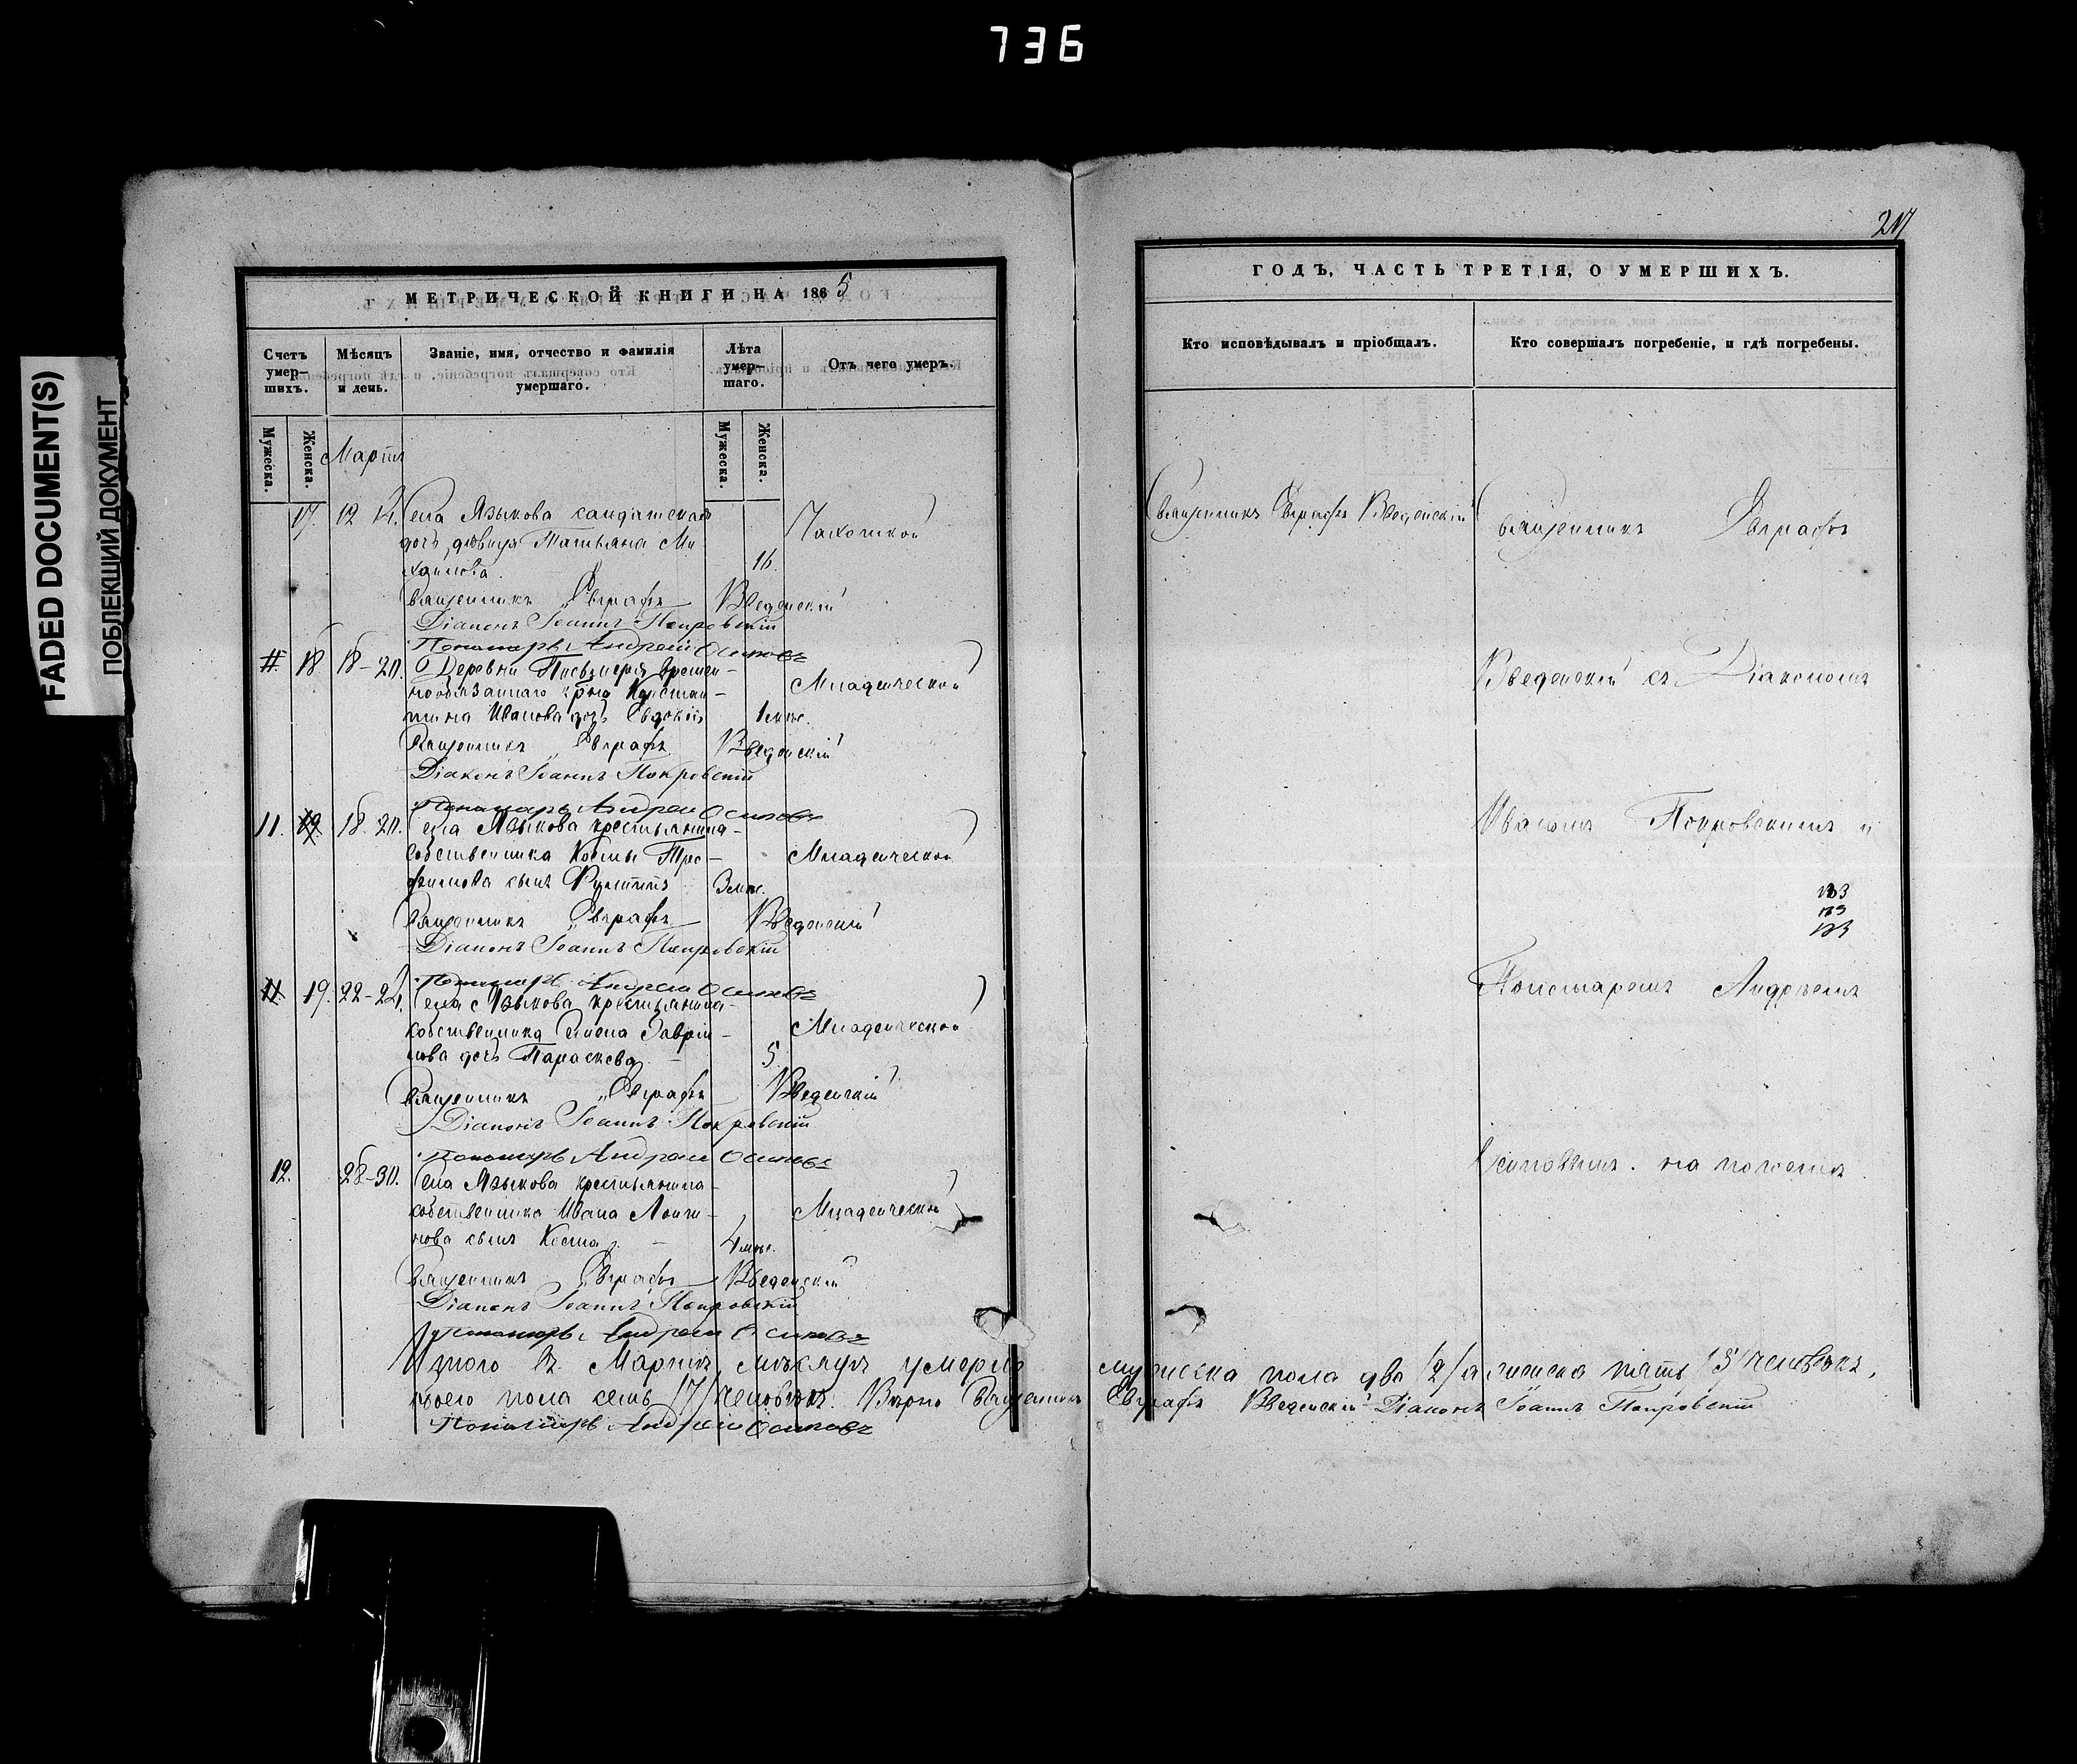 736
FADED DOCUMENT(S)
ПОБЛЕКШИЙ ДОКУМЕНТ
МЕТРИЧЕСКОЙ КНИГИ НА 1865
Счетъ умер-
шихъ.
Мѣсяцъ
и день.
Званіе, имя, отчество и фамилія
умершаго.
Лѣта
умер-
шаго.
Отъ чего умеръ.
Мужеска.
Женска.
Мужеска.
Женска.
Мартъ
17. 12 14. Села Языкова солдатская Чахоткой
дочь, дѣвица Татьяна Ми-
хаилова. 16.
Священникъ Евграфъ Введенскій
Діаконъ Іоаннъ Покровскій
Пономарь Андрей Осиповъ
18 18-20. Деревни времен-
нообязаннаго кр-на Констан- Младенческой
тина Иванова дочь Евдокія 1 мѣс.
Священникъ Евграфъ Введенскій
Діаконъ Іоаннъ Покровскій
Пономарь Андрей Осиповъ
11. 19 18-20. Села Языкова крестьянина-
собственника Космы Тро- Младенческой
фимова сынъ 3 мѣс.
Священникъ Евграфъ Введенскій
Діаконъ Іоаннъ Покровскій
Пономарь Андрей Осиповъ
11 19. 22-24. Села Языкова крестьянина-
собственника Гаврі- Младенческой
лова дочь Параскева 5.
Священникъ Евграфъ Введенскій
Діаконъ Іоаннъ Покровскій
Пономарь Андрей Осиповъ
12. 28-30. Села Языкова крестьянина-
собственника Ивана Лонги- Младенческой
нова сынъ Косма. 4 мѣс.
Священникъ Евграфъ Введенскій
Діаконъ Іоаннъ Покровскій
Пономарь Андрей Осиповъ
Итого въ Мартѣ мѣсяцѣ умерло мужеска пола два /2/ а женска пять /5/ человѣкъ,
обоего пола семь /7/ человѣкъ. Вѣрно Священникъ Евграфъ Введенскій Діаконъ Іоаннъ Покровскій
Пономарь Андрей Осиповъ
217
ГОДЪ, ЧАСТЬ ТРЕТІЯ, О УМЕРШИХЪ.
Кто исповѣдывалъ и пріобщалъ.
Кто совершалъ погребеніе, и гдѣ погребены.
Священникъ Евграфъ Введенскій
Священникъ Евграфъ
Введенскій съ Діакономъ
Иваномъ Покровскимъ и
Пономаремъ Андреемъ
Осиповымъ. на